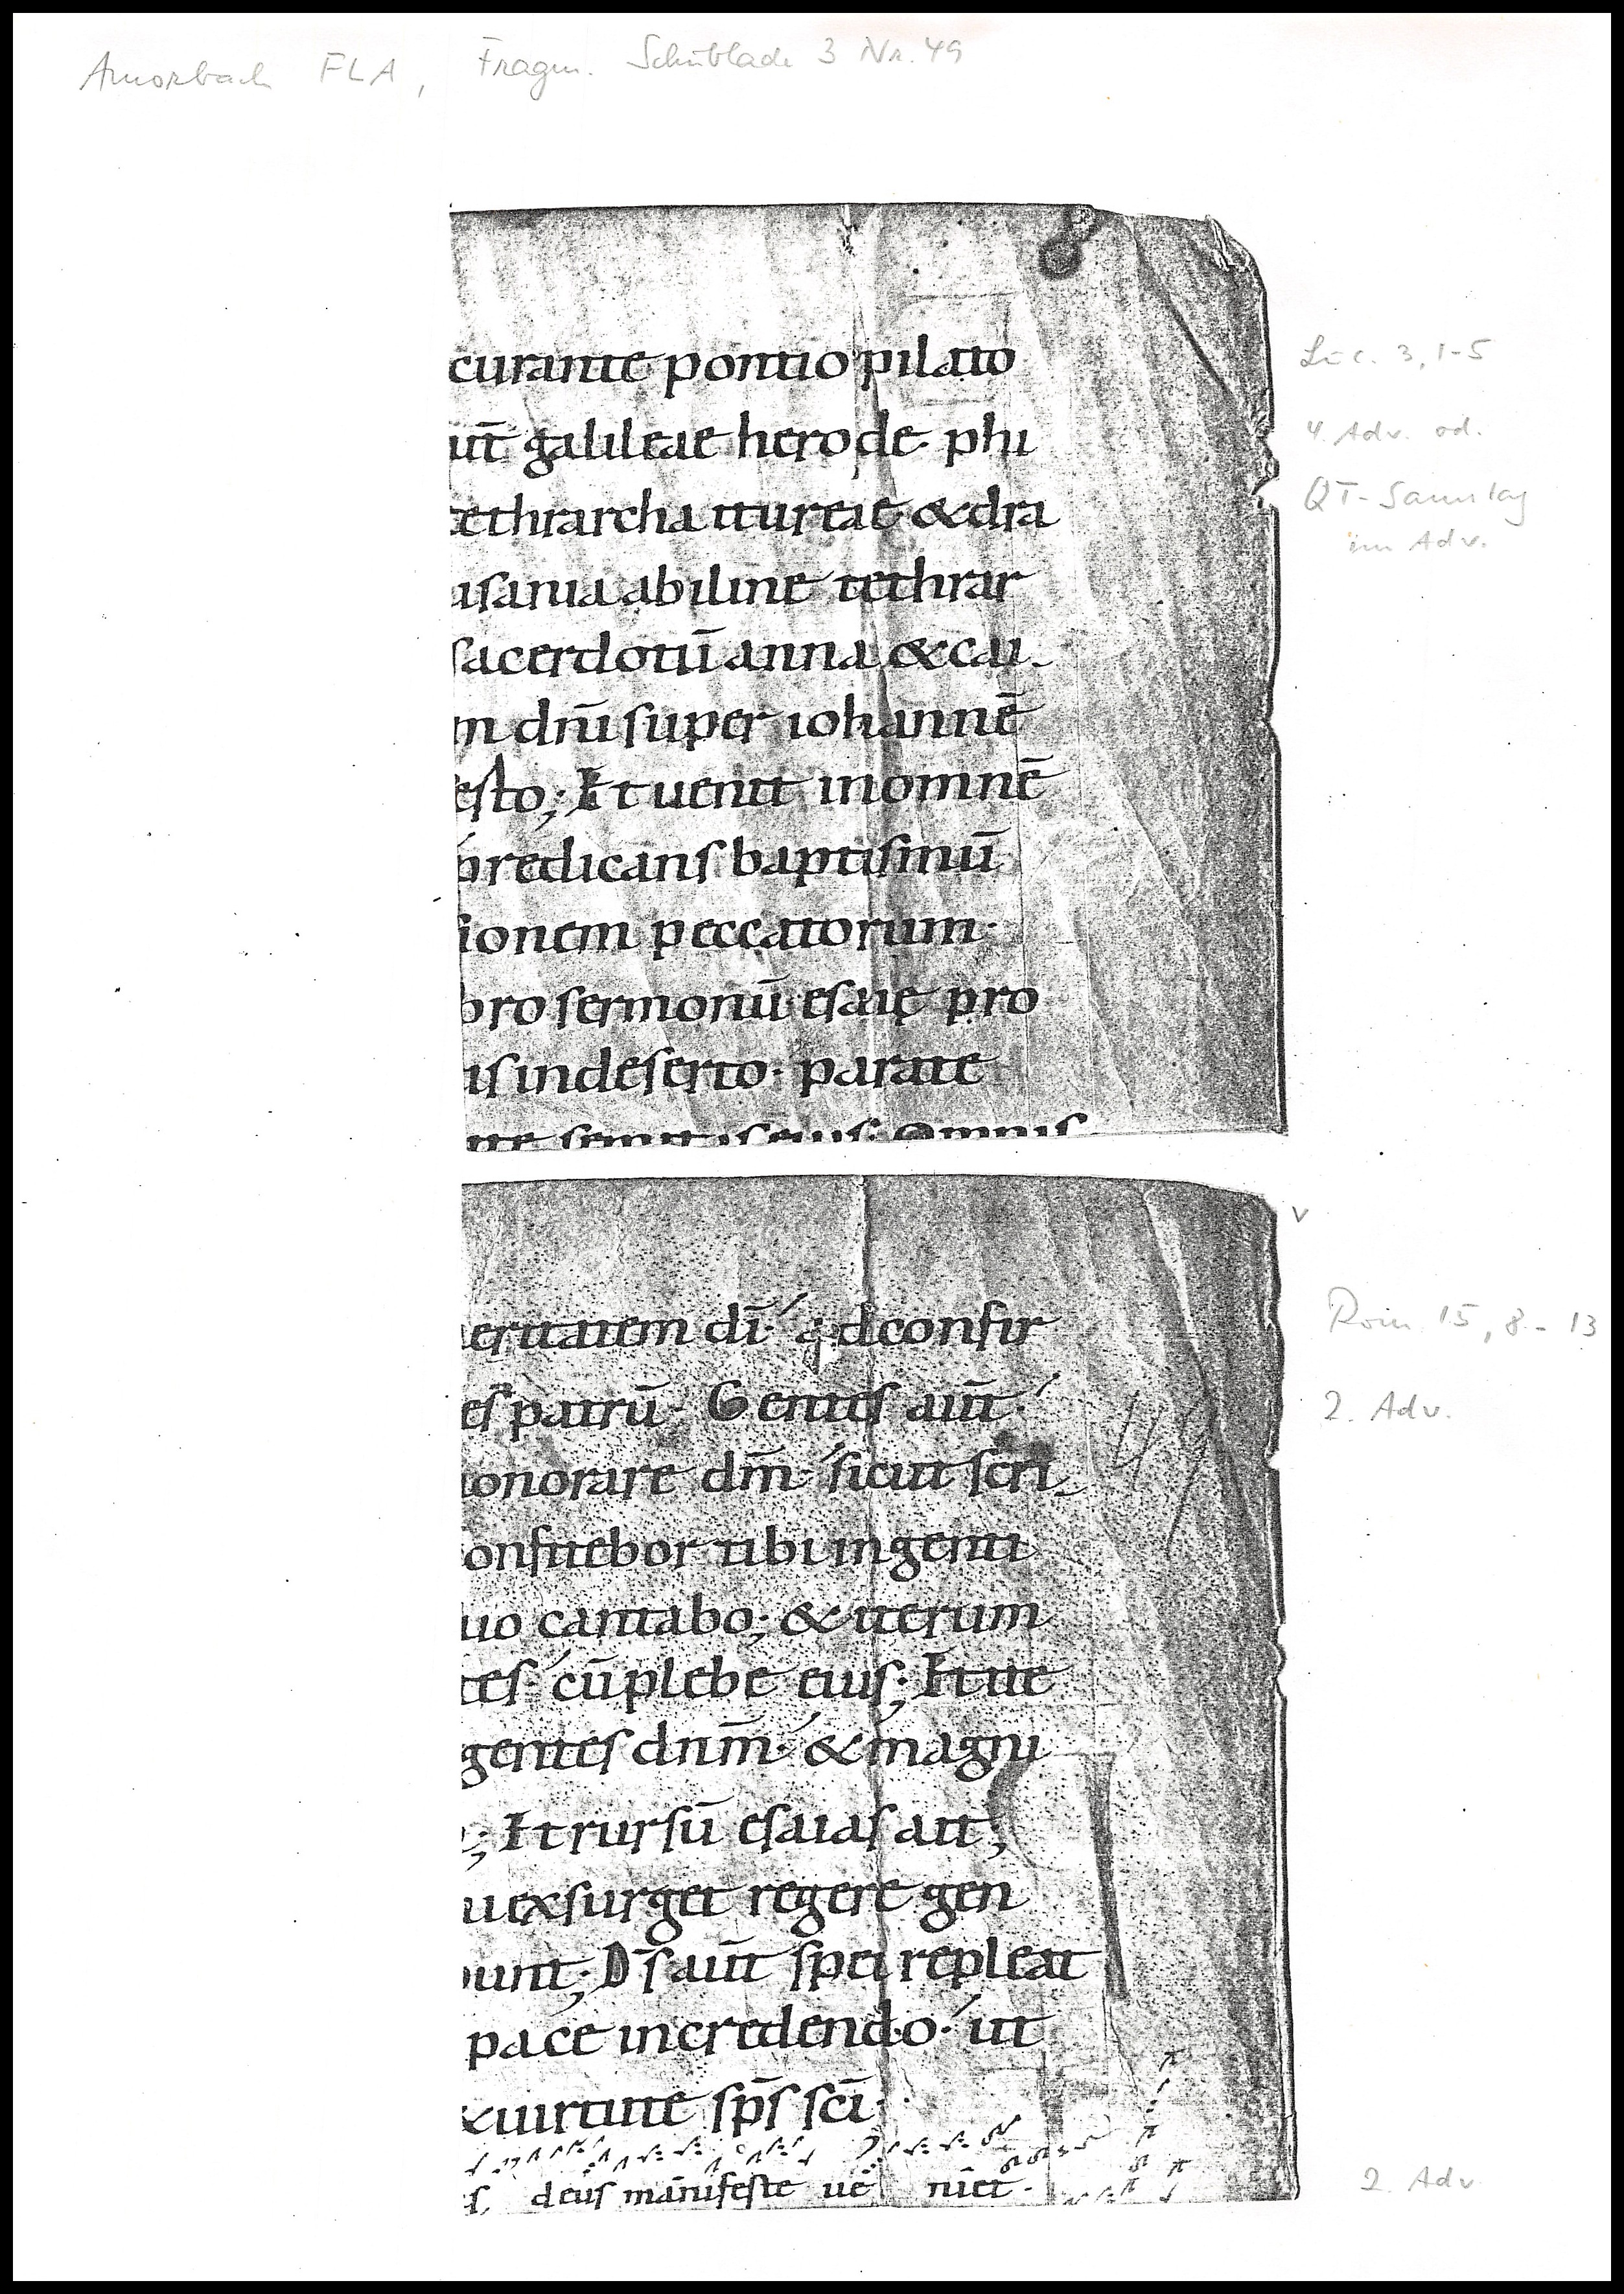 Amorbach FLA, Fragm. Schublade 3 Nr. 49
curante pontio pilato
Luc. 3, 1-5
aut̄ galileae herode· phi
4. Adv. od.
tethrarcha itureae & dra
QT-Samstag
im Adv.
isania abiline tethrar
sacerdotū anna & cai
m dn̄i super iohannē
esto; Et uenit in omnē
predicans baptismū
ionem peccatorum·
bro sermonū esaię pro
is in deserto· parate
ite semitas eius; Omnis
v
eritatem dī· qd confir
Röm. 15, 8-13
es patrū· Gentes aut̄·
2. Adv.
honorare dm̄· sicut scri
onfitebor tibi in genti
uo cantabo; & iterum
tes· cū plebe eius; Et ite
gentes dn̄m· & magni
; Et rursū esaias ait;
ui exsurget regere gen
bunt; Ds̄ aut̄ spei repleat
pace in credendo· ut
& uirtute sp̄s sc̄i·
s, deus manifeste ue niet·
2. Adv